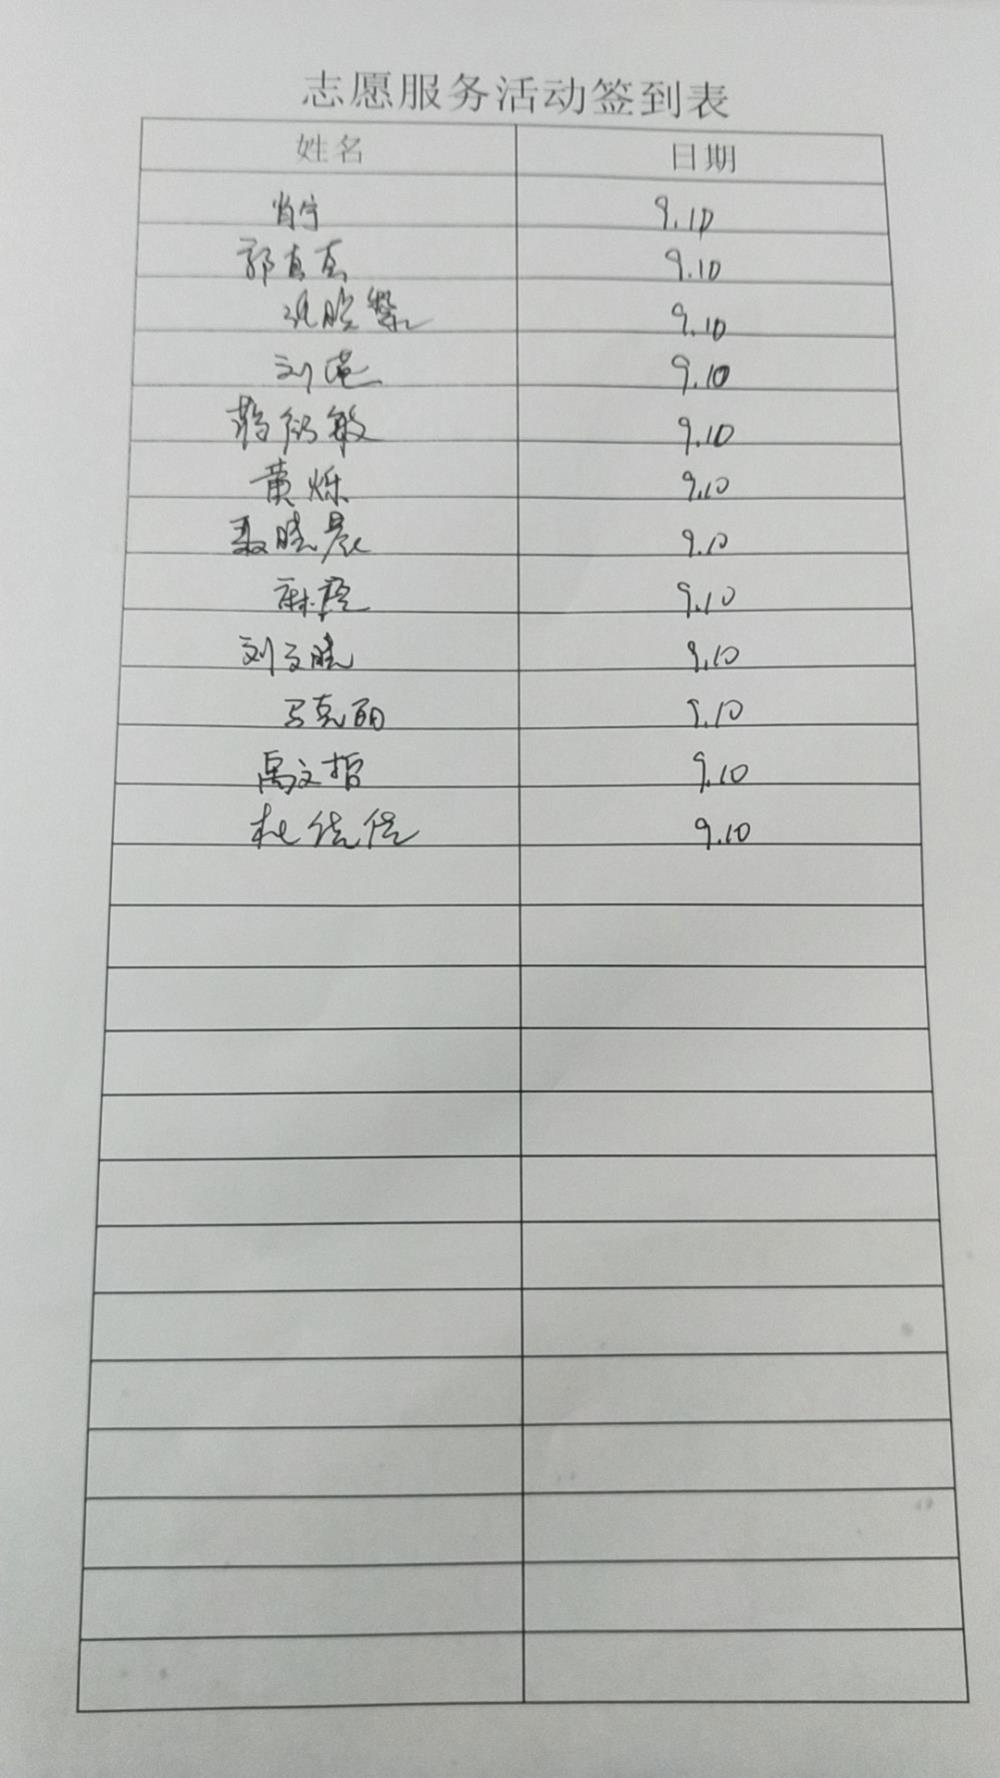 志愿服务活动签到表
姓名 日期
肖宁 9.10
郭真真 9.10
9.10
刘莲 9.10
敏 9.10
黄烁 9.10
聂晓晨 9.10
麻 9.10
刘文晓 9.10
马克丽 9.10
禹文哲 9.10
杜佳佳 9.10